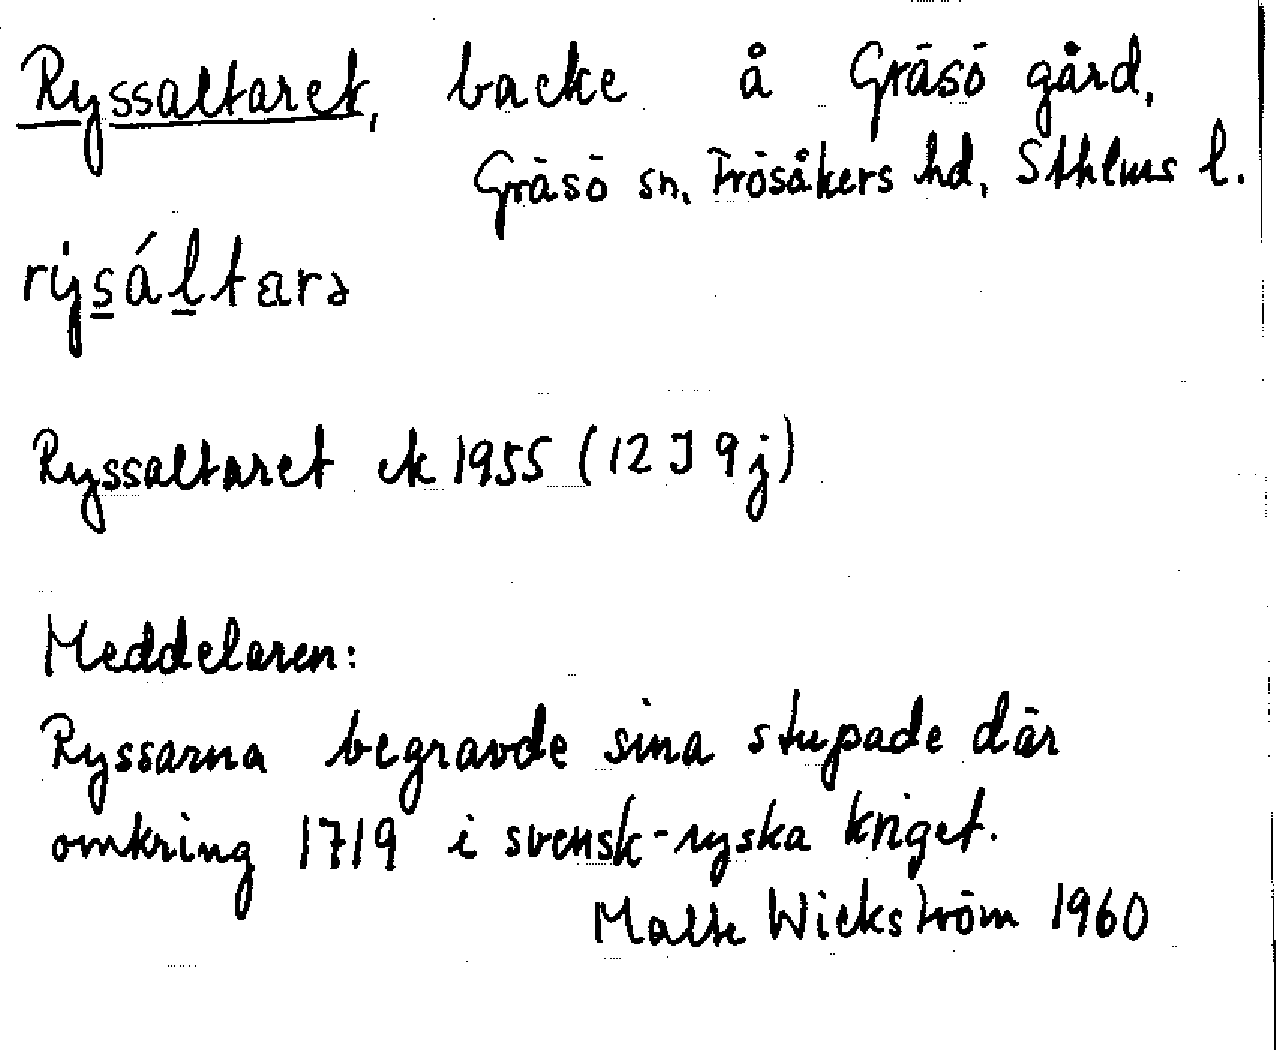 Ryssaltaret, backe å Gräsö gård,
Gräsö sn, Frösåkers hd, Sthlms l.
rẏsáltarə
Ryssaltaret ek 1955 (12 J 9 j)
Meddelaren:
Ryssarna begravde sina stupade där
omkring 1719 i svensk-ryska kriget.
Malte Wickström 1960